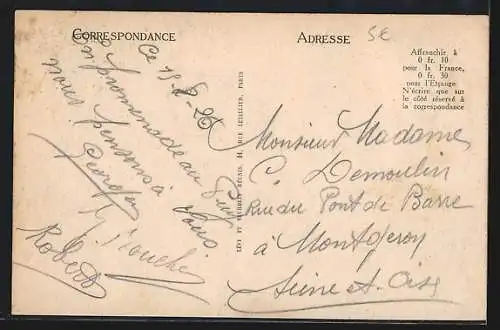 CORRESPONDANCE
Ce 15-8-26
En promenade au Puy
nous pensons à vous
Georges
Y. Rouche
Robert
LÉVY ET NEURDEIN RÉUNIS, 44, RUE LETELLIER, PARIS
ADRESSE
5€
Affranchir à
0 fr. 10
pour la France,
0 fr. 30
pour l'Etrange
N'écrire que sur
le côté réservé à
la correspondance
Monsieur Madame
C. Demoulin
Rue du Pont de Barre
à Montgeron
Seine et Oise